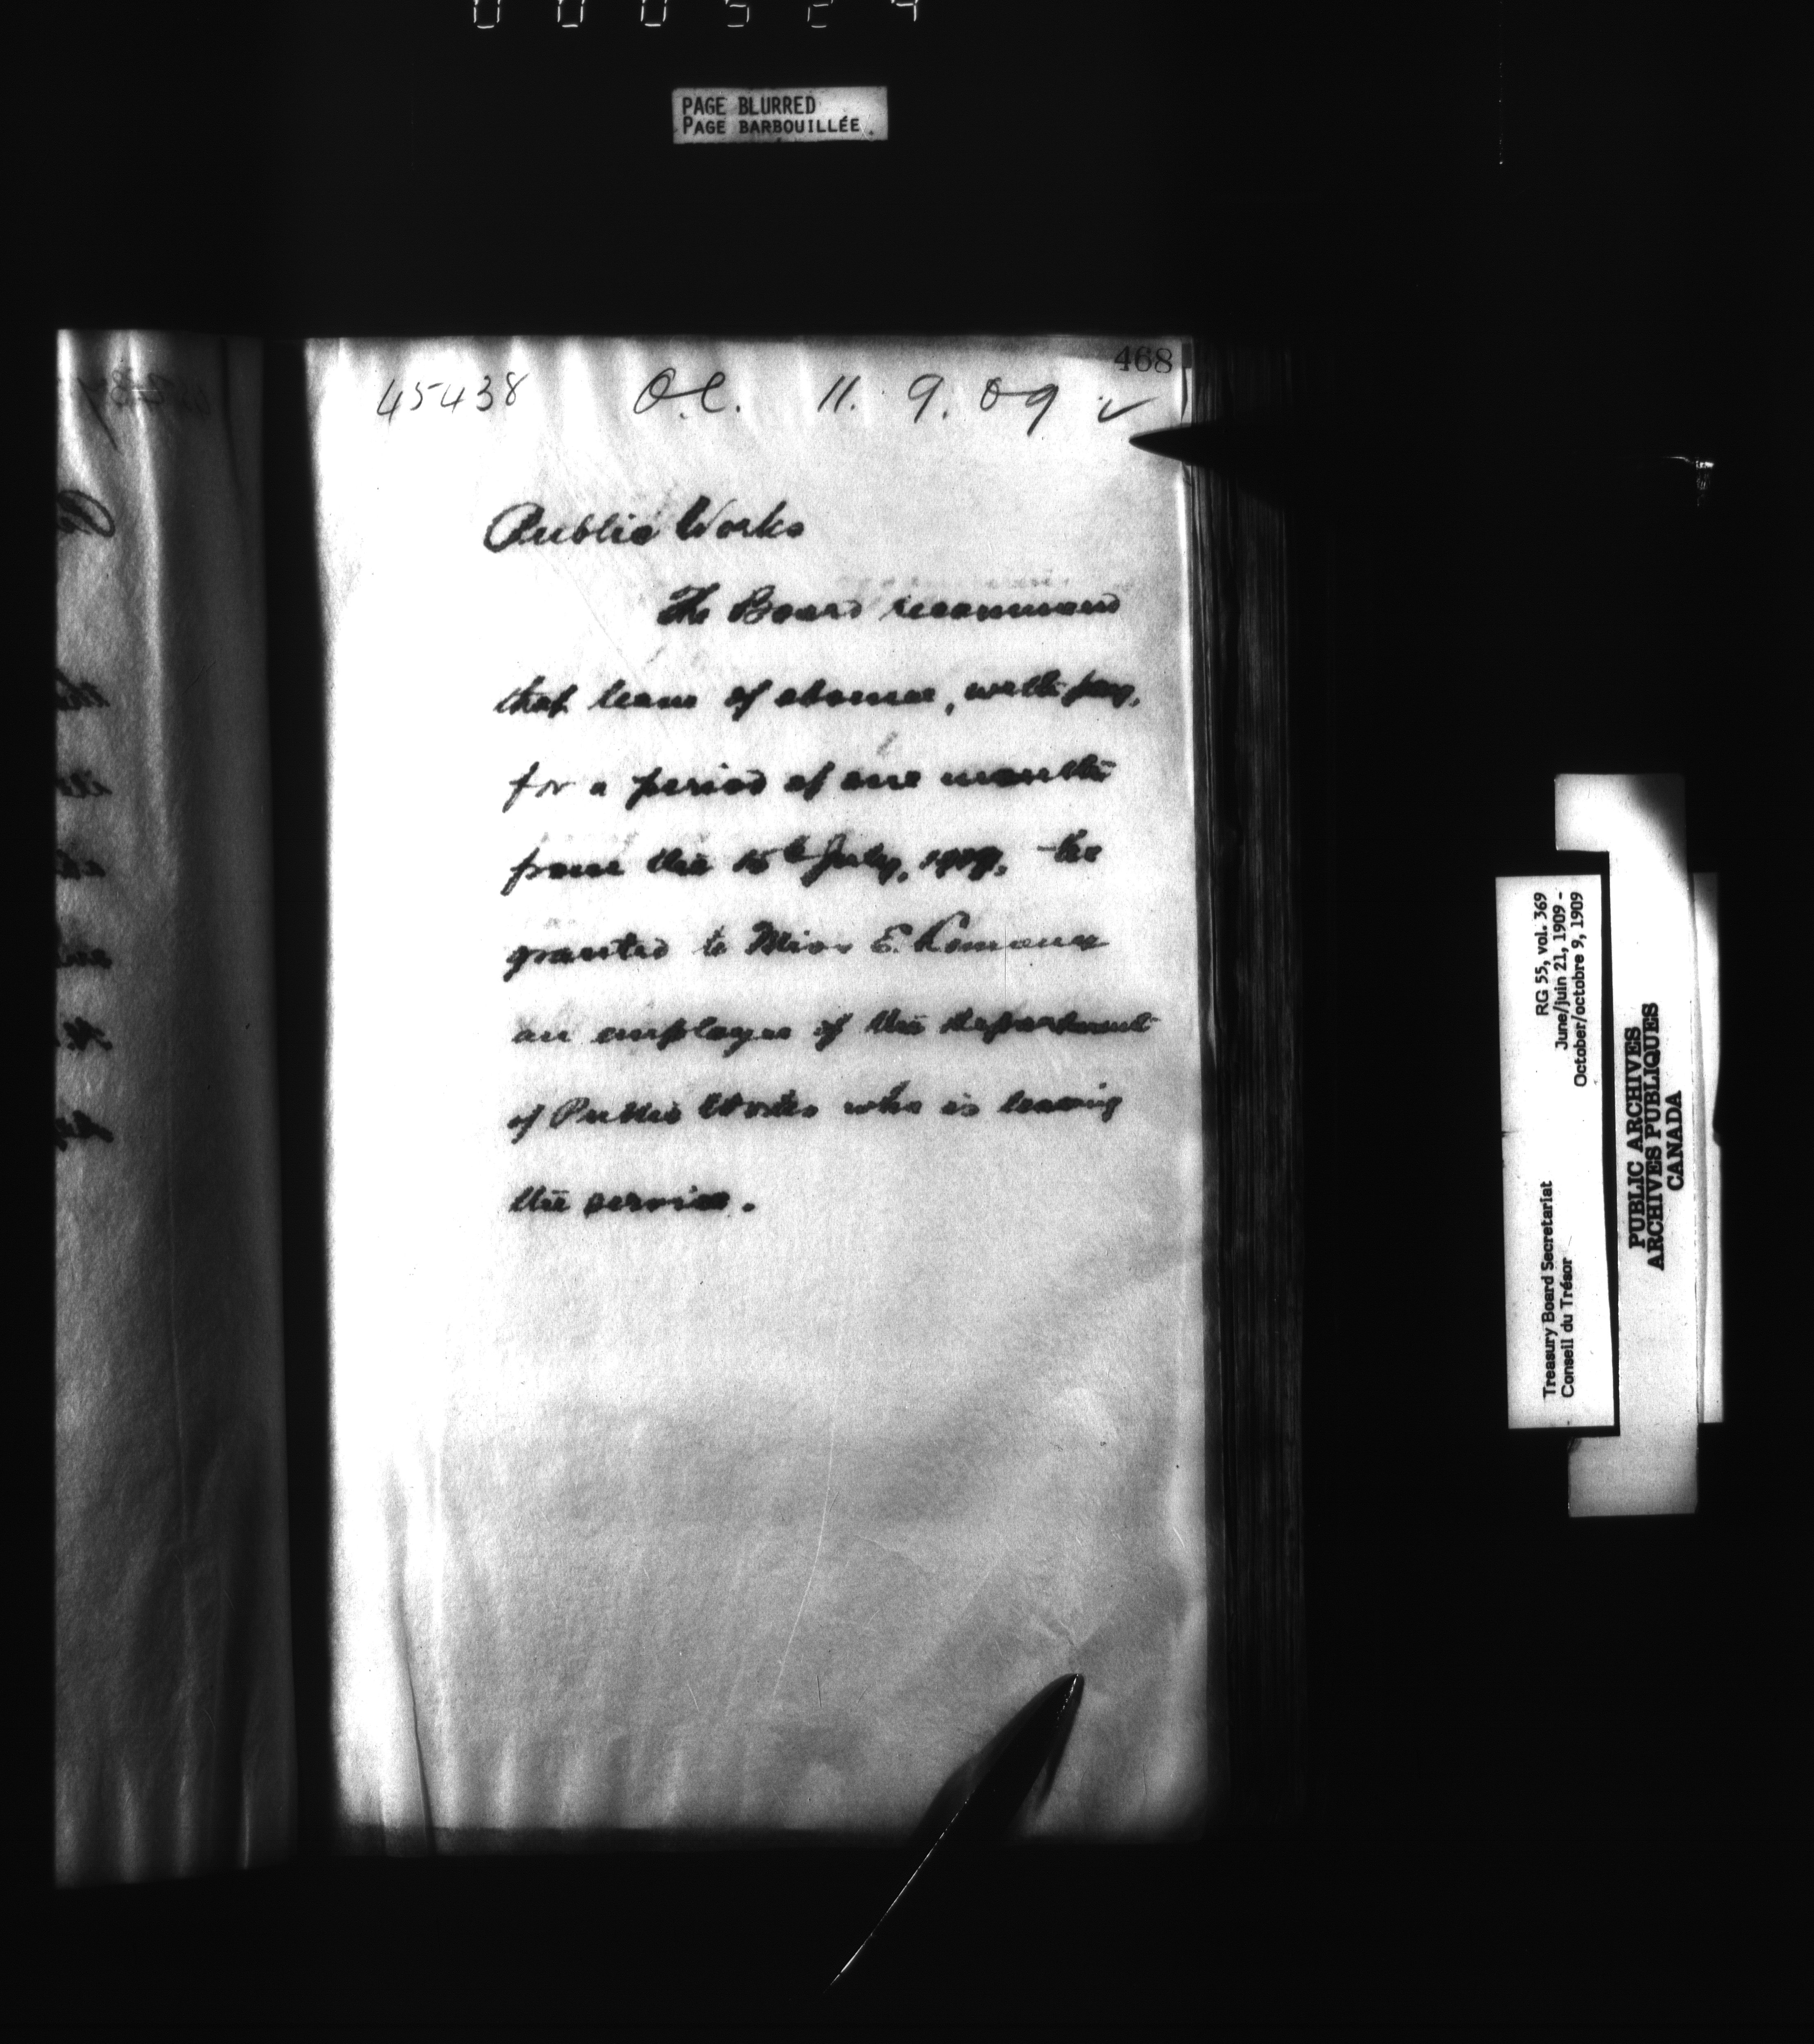 PAGE BLURRED
PAGE BARBOUILLÉE
468
45438 O.C. 11. 9. 09 ✓
Public Works
The Board recommend
that leave of absence, with pay,
for a period of one month
from the 15th July, 1909, be
granted to Miss E.
an employee of the department
of Public Works who is leaving
the service.
RG 55, vol. 369
June/juin 21, 1909 -
October/octobre 9, 1909
Treasury Board Secretariat
Conseil du Trésor
PUBLIC ARCHIVES
ARCHIVES PUBLIQUES
CANADA